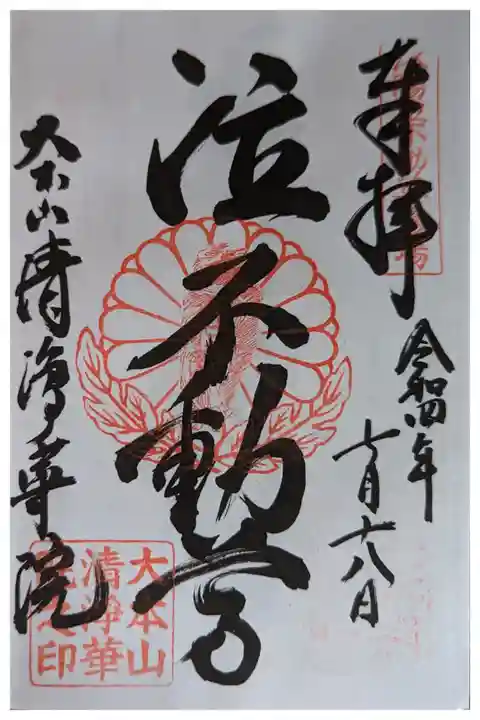 奉拝
令和四年
七月十八日
泣不動尊
大本山清浄華院
大本山
清浄華
院之印